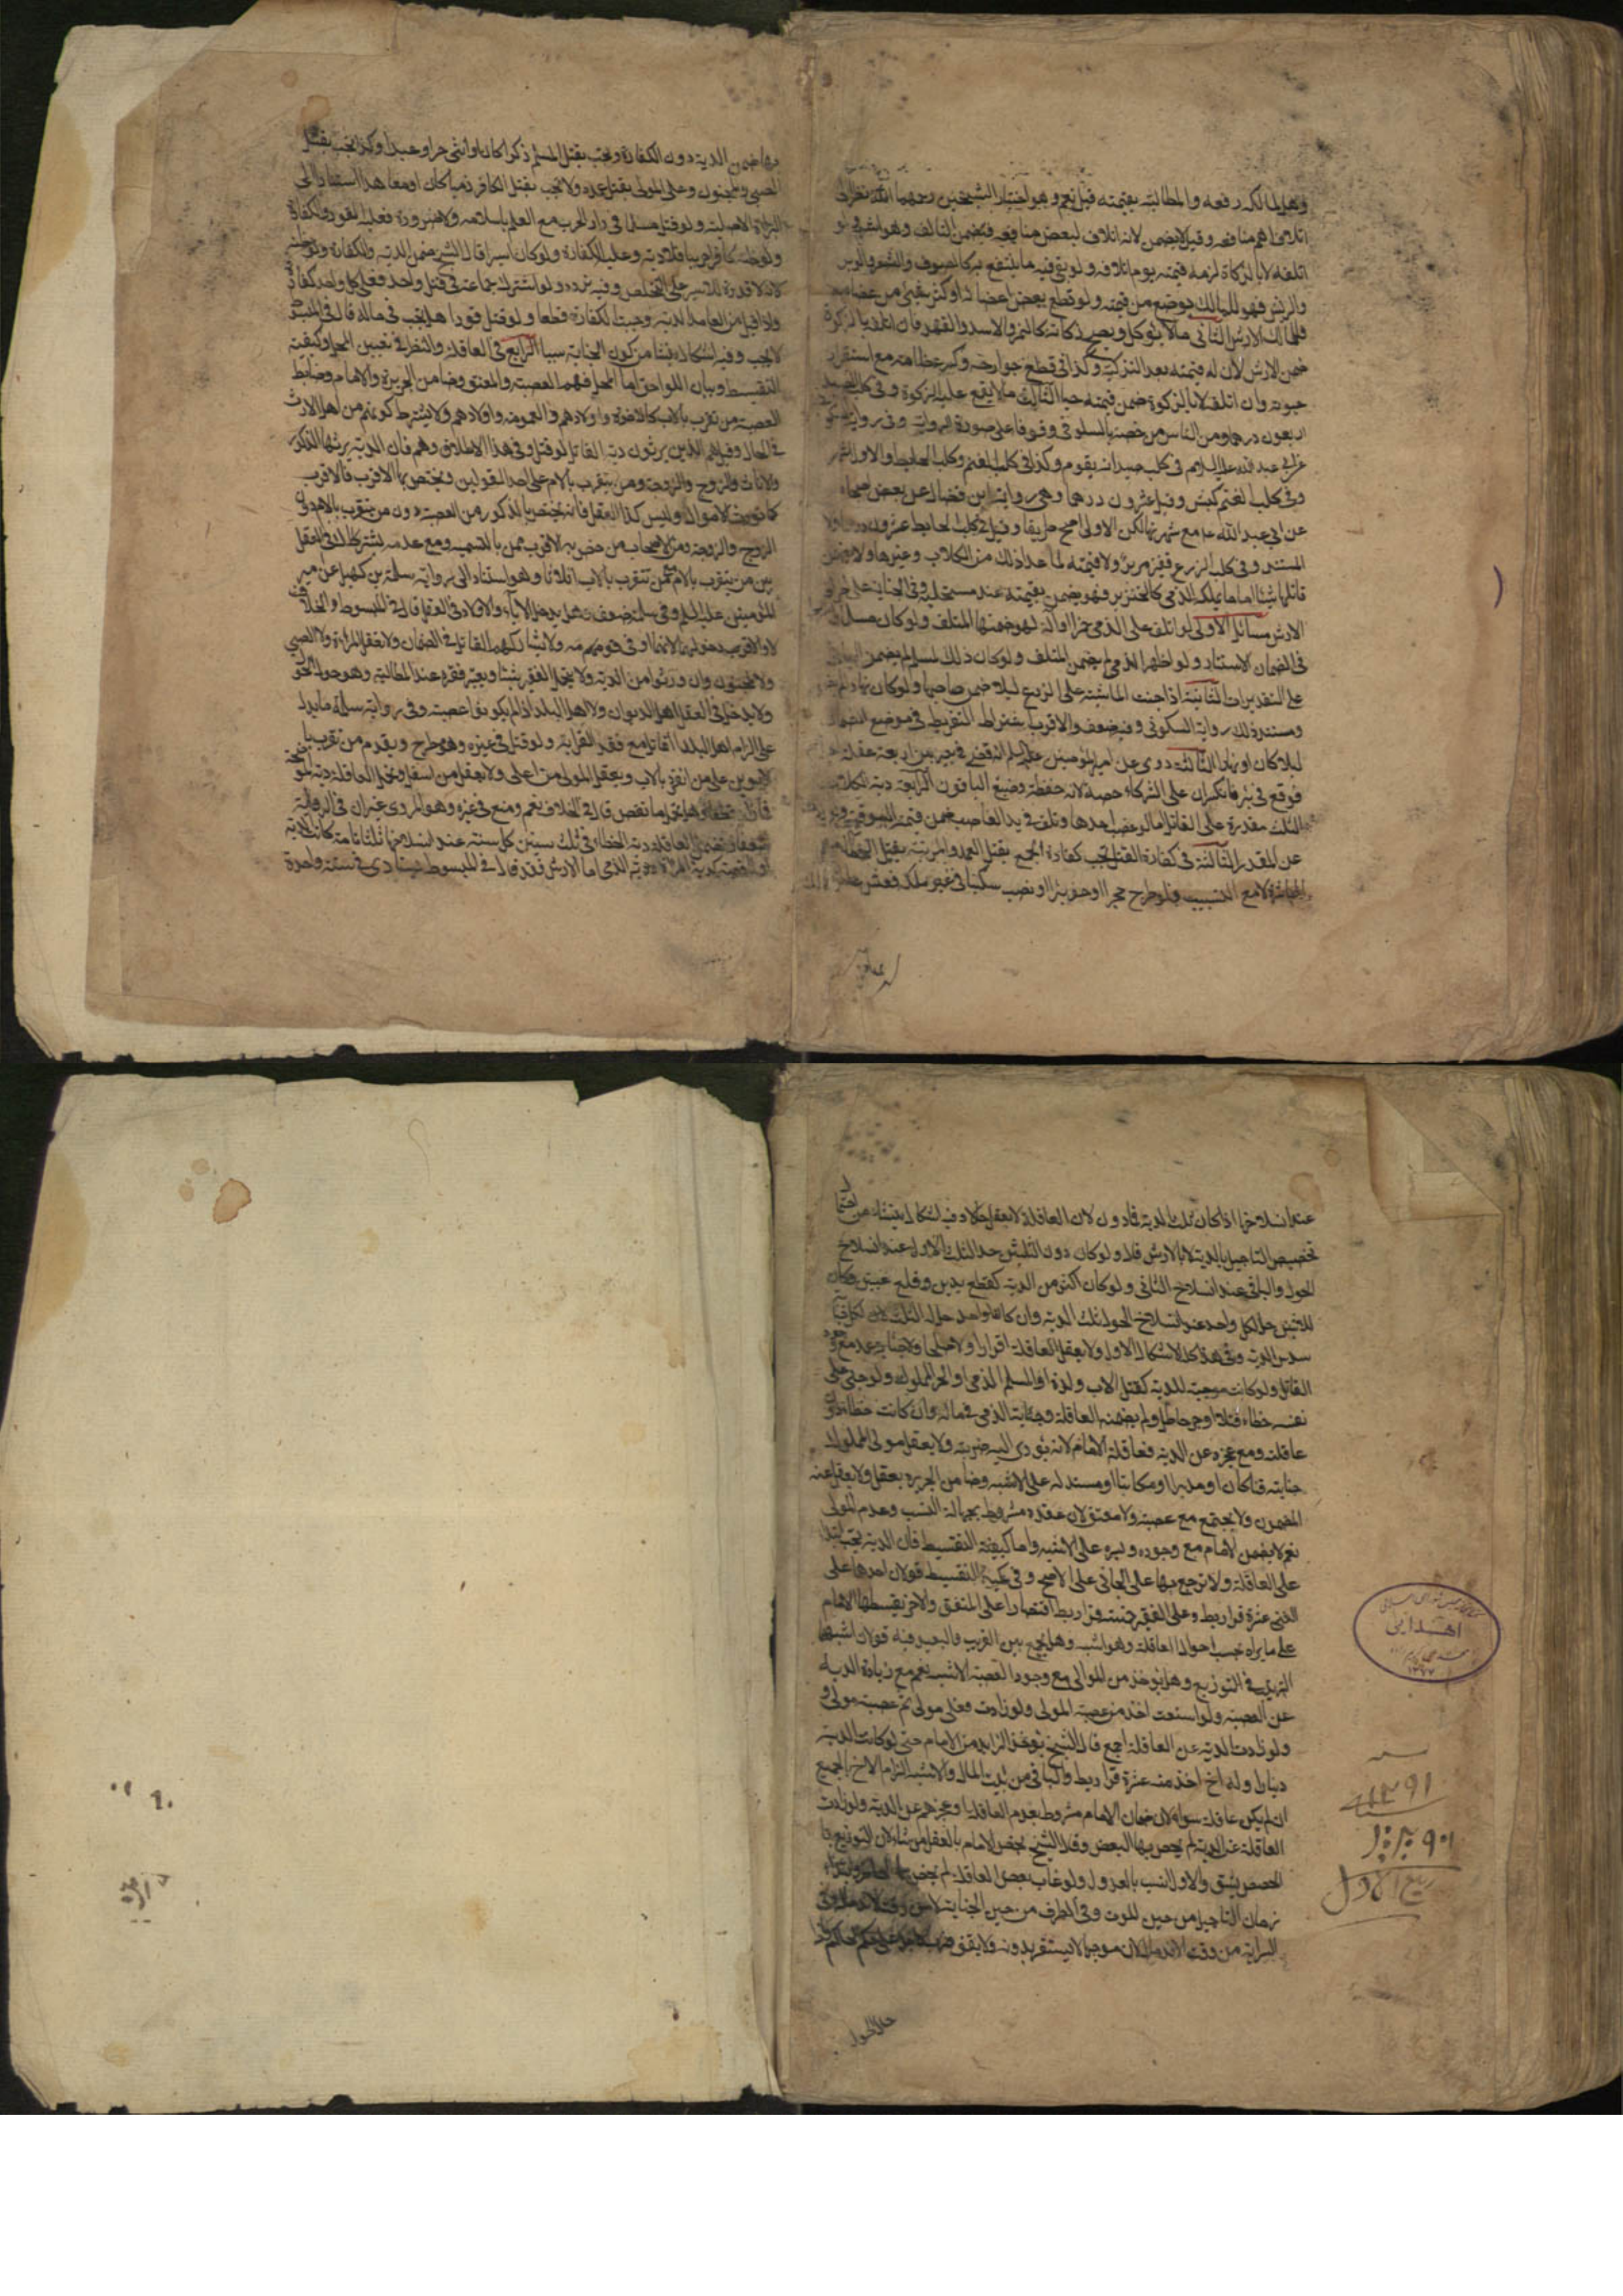 وهل لمالكه دفعه والمطالبة بقيمته قيل نعم وهو اختيار الشيخين رحمهما الله نظرا الى
اتلاف اهم منافعه وقيل لا يضمن لانه اتلاف لبعض منافعه فيضمن التالف وهو اشبه لو
اتلفه لا بالذكاة لزمه قيمته يوم اتلافه ولو بقي فيه ما ينتفع به كالصوف والشعر والوبر
والريش فهو للمالك يوضع من قيمته ولو قطع بعض اعضائه او كسر شيئا من عظامه
فللمالك الارش الثاني ما لا يؤكل ويصح ذكاته كالنمر والاسد والفهد فان اتلفه بالذكوة
ضمن الارش لان له قيمته بعد التذكية وكذا في قطع جوارحه وكسر عظامه مع استقرار
حيوته وان اتلفه لا بالذكوة ضمن قيمته حيا الثالث ما لا يقع عليه الذكوة وفي كلب الصيد
اربعون درهما ومن الناس من خصه بالسلوقي وقوفا على صورة الرواية وفي رواية
عن ابي عبد الله عليه السلام في كلب الصيد انه يقوم وكذا في كلب الغنم وكلب الحايط والاول اشهر
وفي كلب الغنم كبش وقيل عشرون درهما وهي رواية ابن فضال عن بعض اصحابه
عن ابي عبد الله ع مع شهرتها لكن الاولى اصح طريقا وقيل في كلب الحايط عشرون درهما ولا
المستند وفي كلب الزرع قفيز من بر ولا قيمة لما عدا ذلك من الكلاب وغيرها ولا يضمن
قاتلها شيئا اما ما يملكه الذمي كالخنزير فهو يضمن بقيمته عند مستحليه وفي الجناية على اطرافه
الارش مسائل الاولى لو اتلف على الذمي خمرا او آلة لهو ضمنها المتلف ولو كان مسلما
في الضمان الاستتار ولو اظهرها الذمي لم يضمن المتلف ولو كان ذلك لمسلم لم يضمن الجاني
على التقديرات الثانية اذا جنت الماشية على الزرع ليلا ضمن صاحبها ولو كان نهارا لم يضمن
ومستند ذلك رواية السكوني وفيه ضعف والاقرب اشتراط التفريط في موضع الضمان
ليلا كان او نهارا الثالثة روي عن امير المؤمنين عليه السلام انه قضى في بعير بين اربعة عقله احدهم
فوقع في بئر فانكسر ان على الشركاء حصته لانه حفظه وضيع الباقون الرابعة دية الكلاب
الثلث مقدرة على القاتل اما لو غصب احدها وتلف في يد الغاصب ضمن قيمته السوقية ولو زادت
عن المقدر الثالثة في كفارة القتل تجب كفارة الجمع بقتل العمد والمرتبة بقتل الخطاء مع
المباشرة لا مع التسبيب فلو طرح حجرا او حفر بئرا او نصب سكينا في غير ملكه فعثر عاثر فهلك
بها ضمن الدية دون الكفارة وتجب بقتل المسلم ذكرا كان او انثى حرا او عبدا وكذا تجب بقتل
الصبي والمجنون وعلى المولى بقتل عبده ولا تجب بقتل الكافر ذميا كان او معاهدا استنادا الى
البراءة الاصلية ولو قتل مسلما في دار الحرب مع العلم باسلامه ولا ضرورة فعليه القود والكفارة
ولو ظنه كافرا حربيا فلا دية وعليه الكفارة ولو كان اسيرا قال الشيخ ضمن الدية والكفارة
لانه لا قدرة للاسير على التخلص وفيه تردد ولو اشترك جماعة في قتل واحد فعلى كل واحد كفارة
واذا قبل من العامد الدية وجبت الكفارة قطعا ولو قتل قودا هل تجب في ماله قال في المبسوط
لا تجب وفيه اشكال ينشا من كون الجناية سببا الرابع في العاقلة والنظر في تعيين المحل وكيفية
التقسيط وبيان اللواحق اما المحل فهم العصبة والمعتق وضامن الجريرة والامام وضابط
العصبة من تقرب بالاب كالاخوة واولادهم والعمومة واولادهم ولا يشترط كونهم من اهل الارث
في الحال وقيل هم الذين يرثون دية القاتل لو قتل وفي هذا الاطلاق وهم فان الدية يرثها الذكور
والاناث والزوج والزوجة ومن يتقرب بالام على احد القولين ويختص بها الاقرب فالاقرب
كما تورث الاموال وليس كذا العقل فانه يختص بالذكور من العصبة دون من يتقرب بالام دون
الزوج والزوجة ومن الاصحاب من خص به الاقرب ممن يرث بالتسمية ومع عدمه يشترك في العقل
بين من يتقرب بالام مع من يتقرب بالاب اثلاثا وهو استناد الى رواية سلمة بن كهيل عن امير
المؤمنين عليه السلم وفي سلمة ضعف وهل يدخل الاباء والاولاد في العقل قال في المبسوط والخلاف
لا والاقرب دخولهما لانهما ادنى قومه ولا يشاركهم القاتل في الضمان ولا تعقل المراة ولا الصبي
ولا المجنون وان ورثوا من الدية ولا يتحمل الفقير شيئا ويعتبر فقره عند المطالبة وهو حول الحول
ولا يدخل في العقل اهل الديوان ولا اهل البلد اذا لم يكونوا عصبة وفي رواية سلمة ما يدل
على الزام اهل بلد القاتل مع فقد القرابة ولو قتل في غيره وهو مطرح ويقدم من تقرب بالا
لابوين على من انفرد بالاب ويعقل المولى من اعلى ولا يعقل من اسفل وتحمل العاقلة دية الموضحة
فما زاد قطعا وهل تحمل ما نقص قال في الخلاف نعم ومنع في غيره وهو المروي غير ان في الرواية
ضعفا وتضمن العاقلة دية الخطاء في ثلث سنين كل سنة عند انسلاخها ثلثا تامة كانت الدية
او ناقصة كدية المراة ودية الذمي اما الارش فقد قال في المبسوط يستادى في سنة واحدة
عند انسلاخها اذا كان ثلث الدية فما دون لان العاقلة لا تعقل حالا وفيه اشكال ينشا من احتمال
تخصيص التاجيل بالدية لا بالارش قال ولو كان دون الثلثين حل الثلث الاول عند انسلاخ
الحول والباقي عند انسلاخ الثاني ولو كان اكثر من الدية كقطع يدين وقلع عينين وكان
لاثنين حل لكل واحد عند انسلاخ الحول ثلث الدية وان كان لواحد حل له الثلث لكل جناية
سدس الدية وفي هذا كله الاشكال الاول ولا يعقل العاقلة اقرارا ولا صلحا ولا جناية عمد مع وجود
القاتل ولو كانت موجبة للدية كقتل الاب ولده او المسلم الذمي او الحر المملوك ولو جنى على
نفسه خطاء قتلا او جرحا طل ولم يضمنه العاقلة وجناية الذمي في ماله وان كانت خطاء دون
عاقلته ومع عجزه عن الدية فعاقلته الامام لانه يؤدي اليه ضريبته ولا يعقل مولى المملوك
جنايته قنا كان او مدبرا او مكاتبا او مستولدة على الاشبه وضامن الجريرة يعقل ولا يعقل عنه
المضمون ولا يجتمع مع عصبة ولا معتق لان عقده مشروط بجهالة النسب وعدم المولى
نعم لا يضمن الامام مع وجوده ويسره على الاشبه واما كيفية التقسيط فان الدية تجب ابتداء
على العاقلة ولا ترجع بها على الجاني على الاصح وفي كمية التقسيط قولان احدهما على
الغني عشرة قراريط وعلى الفقير خمسة قراريط اقتصارا على المتفق والاخر يقسطها الامام
على ما يراه بحسب احوال العاقلة وهو اشبه وهل يجمع بين القريب والبعيد فيه قولان اشبههما
الترتيب في التوزيع وهل يؤخذ من الموالي مع وجود العصبة الاشبه نعم مع زيادة الدية
عن العصبة ولو اتسعت اخذ من عصبة المولى ولو زادت فعلى مولى المولى ثم عصبة مولى المولى
ولو زادت الدية عن العاقلة اجمع قال الشيخ يؤخذ الزايد من الامام حتى لو كانت الدية
دينارا وله اخ اخذ منه عشرة قراريط والباقي من بيت المال والاشبه الزام الاخ بالجميع
ان لم يكن عاقلة سواه لان ضمان الامام مشروط بعدم العاقلة او عجزهم عن الدية ولو زادت
العاقلة عن الدية لم يخص بها البعض وقال الشيخ يخص الامام بالعقل من شاء لان التوزيع بالـ
حصص يشق والاول انسب بالعدل ولو غاب بعض العاقلة لم يخص بها الحاضر وابتداء
زمان التاجيل من حين الموت وفي الطرف من حين الجناية لا من وقت الاندمال وفي
السراية من وقت الاندمال لان موجبها لا يستقر بدونه ولا يقف ضرب الاجل على حكم الحاكم
حلا الحول
اهدایی
سنه
۱۲۹۱
ربیع الاول